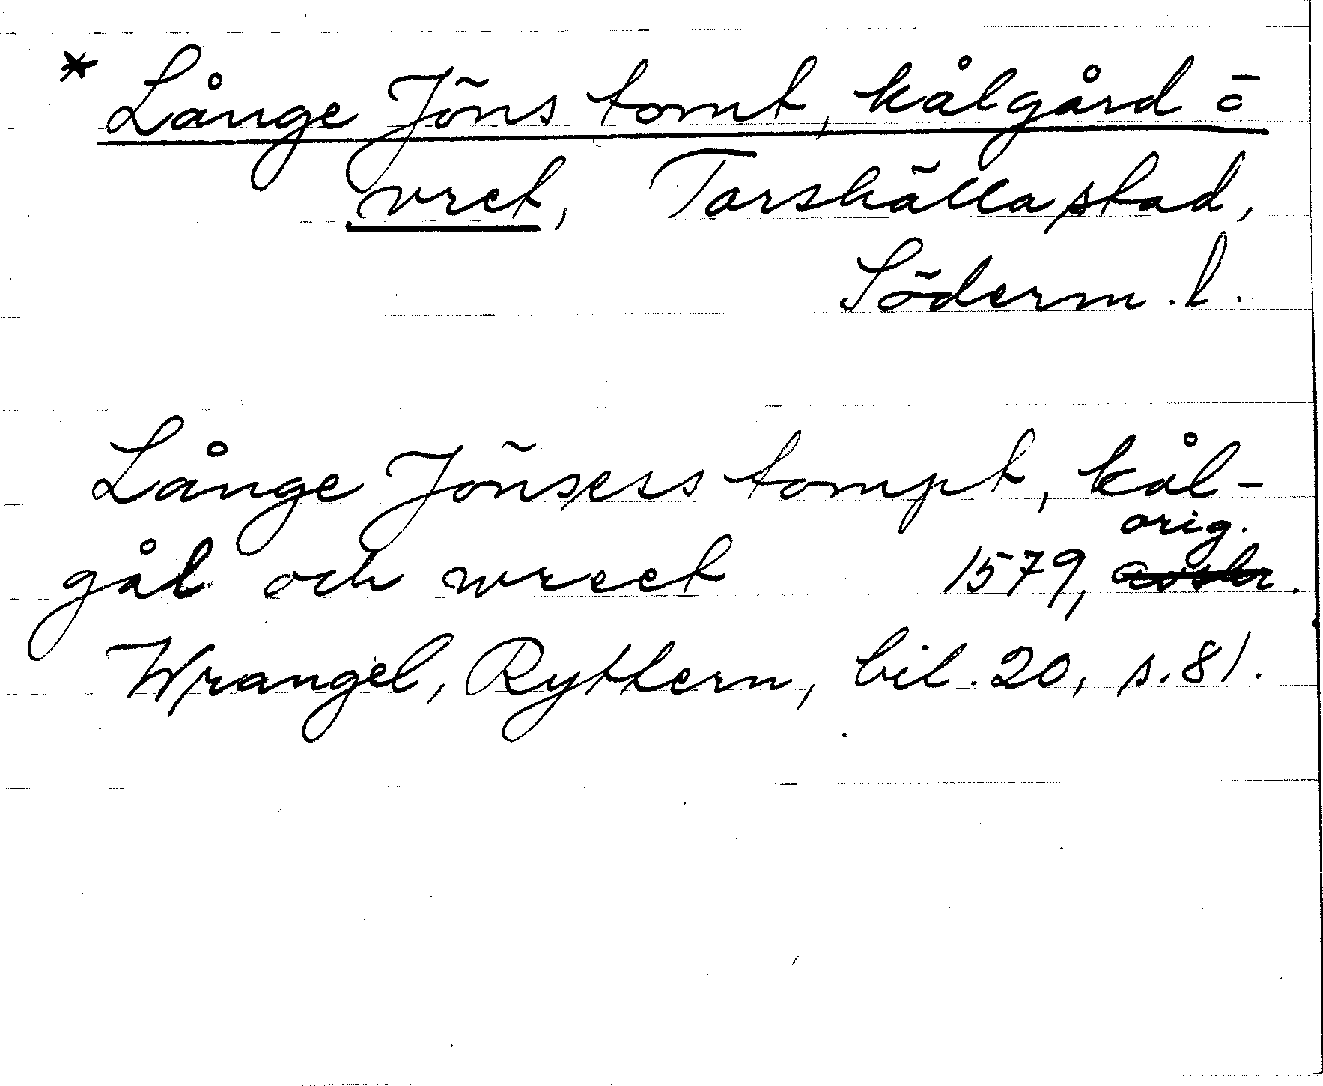 * Långe Jöns tomt, kålgård o
vret, Torshälla stad,
Söderm. l.
Långe Jönsses tompt, kål-
orig.
gål och wreet 1579,
Wrangel, Ryttern, bil. 20, s. 81.